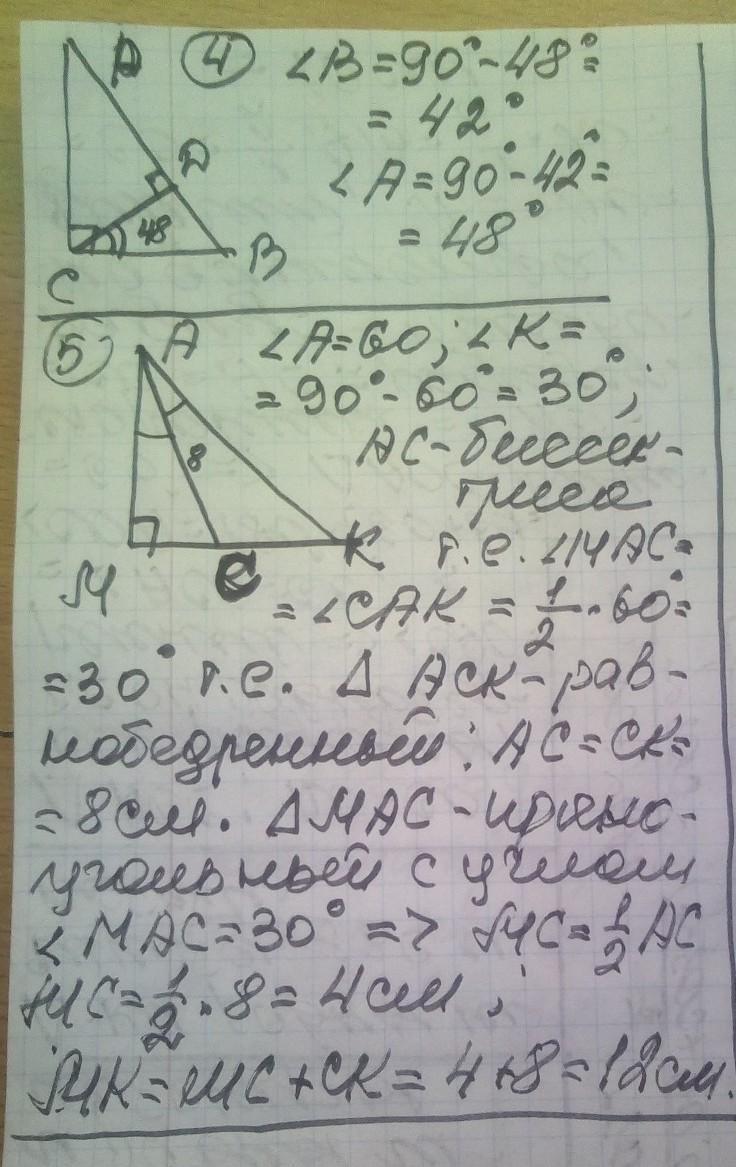 A ④ ∠B = 90° - 48° =
= 42°
D ∠A = 90° - 42° =
48 = 48°
B
C
⑤ A ∠A = 60; ∠K =
= 90° - 60° = 30°;
8 AC - биссек-
триса
K т.е. ∠MAC =
M C = ∠CAK = 1/2 · 60° =
= 30° т.е. △ ACK - рав-
нобедренный; AC = CK =
= 8 см. △MAC - прямо-
угольный с углом
∠MAC = 30° => MC = 1/2 AC
MC = 1/2 · 8 = 4 см;
MK = MC + CK = 4 + 8 = 12 см.